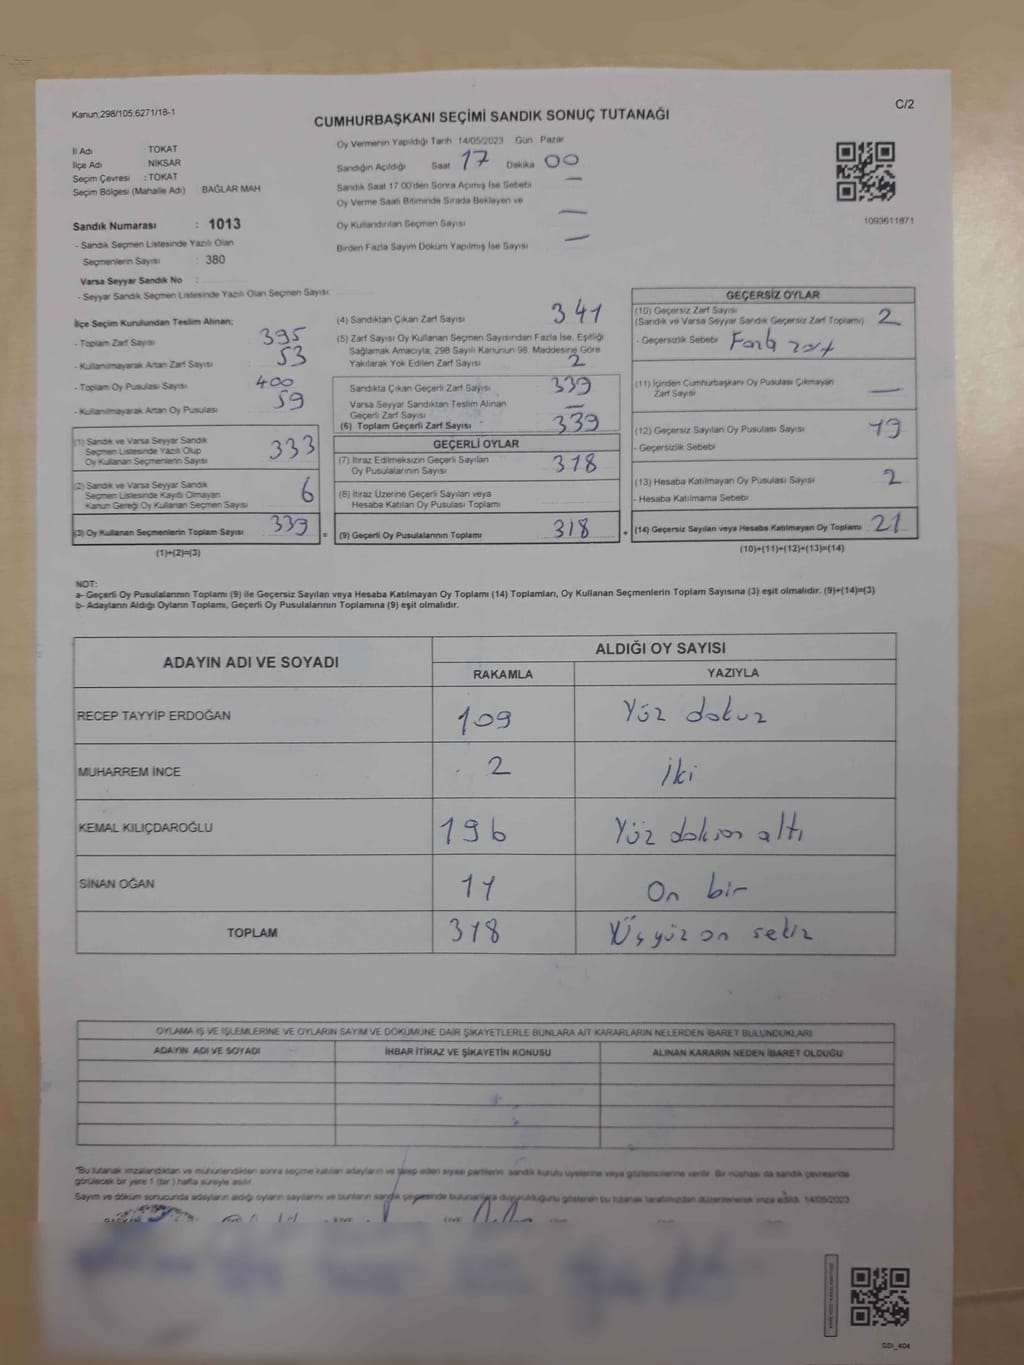 Kanun;298/105;6271/18-1
C/2
CUMHURBAŞKANI SEÇİMİ SANDIK SONUÇ TUTANAĞI
İl Adı TOKAT
İlçe Adı NİKSAR
Seçim Çevresi : TOKAT
Seçim Bölgesi (Mahalle Adı) BAĞLAR MAH
Oy Vermenin Yapıldığı Tarih 14/05/2023 Gün Pazar
Sandığın Açıldığı Saat 17 Dakika 00
Sandık Saat 17:00'den Sonra Açımış İse Sebebi —
Oy Verme Saati Bitiminde Sırada Bekleyen ve
Oy Kullandırılan Seçmen Sayısı —
Birden Fazla Sayım Döküm Yapılmış İse Sayısı —
1093611871
Sandık Numarası : 1013
- Sandık Seçmen Listesinde Yazılı Olan
Seçmenlerin Sayısı : 380
Varsa Seyyar Sandık No :
- Seyyar Sandık Seçmen Listesinde Yazılı Olan Seçmen Sayısı:
İlçe Seçim Kurulundan Teslim Alınan;
- Toplam Zarf Sayısı 395
- Kullanılmayarak Artan Zarf Sayısı 53
- Toplam Oy Pusulası Sayısı 400
- Kullanılmayarak Artan Oy Pusulası 59
(1) Sandık ve Varsa Seyyar Sandık
Seçmen Listesinde Yazılı Olup
Oy Kullanan Seçmenlerin Sayısı 333
(2) Sandık ve Varsa Seyyar Sandık
Seçmen Listesinde Kayıtlı Olmayan
Kanun Gereği Oy Kullanan Seçmen Sayısı 6
(3) Oy Kullanan Seçmenlerin Toplam Sayısı 339
(1)+(2)=(3)
(4) Sandıktan Çıkan Zarf Sayısı 341
(5) Zarf Sayısı Oy Kullanan Seçmen Sayısından Fazla İse, Eşitliği
Sağlamak Amacıyla, 298 Sayılı Kanunun 98. Maddesine Göre
Yakılarak Yok Edilen Zarf Sayısı 2
Sandıkta Çıkan Geçerli Zarf Sayısı 339
Varsa Seyyar Sandıktan Teslim Alınan
Geçerli Zarf Sayısı —
(6) Toplam Geçerli Zarf Sayısı 339
GEÇERLİ OYLAR
(7) İtiraz Edilmeksizin Geçerli Sayılan
Oy Pusulalarının Sayısı 318
(8) İtiraz Üzerine Geçerli Sayılan veya
Hesaba Katılan Oy Pusulası Toplamı
= (9) Geçerli Oy Pusulalarının Toplamı 318 +
GEÇERSİZ OYLAR
(10) Geçersiz Zarf Sayısı
(Sandık ve Varsa Seyyar Sandık Geçersiz Zarf Toplamı) 2
- Geçersizlik Sebebi
(11) İçinden Cumhurbaşkanı Oy Pusulası Çıkmayan
Zarf Sayısı —
(12) Geçersiz Sayılan Oy Pusulası Sayısı 19
- Geçersizlik Sebebi
(13) Hesaba Katılmayan Oy Pusulası Sayısı 2
- Hesaba Katılmama Sebebi
(14) Geçersiz Sayılan veya Hesaba Katılmayan Oy Toplamı 21
(10)+(11)+(12)+(13)=(14)
NOT:
a- Geçerli Oy Pusulalarının Toplamı (9) ile Geçersiz Sayılan veya Hesaba Katılmayan Oy Toplamı (14) Toplamları, Oy Kullanan Seçmenlerin Toplam Sayısına (3) eşit olmalıdır. (9)+(14)=(3)
b- Adayların Aldığı Oyların Toplamı, Geçerli Oy Pusulalarının Toplamına (9) eşit olmalıdır.
ADAYIN ADI VE SOYADI
ALDIĞI OY SAYISI
RAKAMLA YAZIYLA
RECEP TAYYİP ERDOĞAN 109 Yüz dokuz
MUHARREM İNCE 2 İki
KEMAL KILIÇDAROĞLU 196 Yüz doksan altı
SİNAN OĞAN 11 On bir
TOPLAM 318 Üçyüz on sekiz
OYLAMA İŞ VE İŞLEMLERİNE VE OYLARIN SAYIM VE DÖKÜMÜNE DAİR ŞİKAYETLERLE BUNLARA AİT KARARLARIN NELERDEN İBARET BULUNDUKLARI
ADAYIN ADI VE SOYADI İHBAR İTİRAZ VE ŞİKAYETİN KONUSU ALINAN KARARIN NEDEN İBARET OLDUĞU
*Bu tutanak imzalandıktan ve mühürlendikten sonra seçime katılan adayların ve talep eden siyasi partilerin sandık kurulu üyelerine veya gözlemcilerine verilir. Bir nüshası da sandık çevresinde
görülecek bir yere 1 (bir) hafta süreyle asılır.
Sayım ve döküm sonucunda adayların aldığı oyların sayılarını ve bunların sandık çevresinde bulunanlara duyurulduğunu gösteren bu tutanak tarafımızdan düzenlenerek imza edildi. 14/05/2023